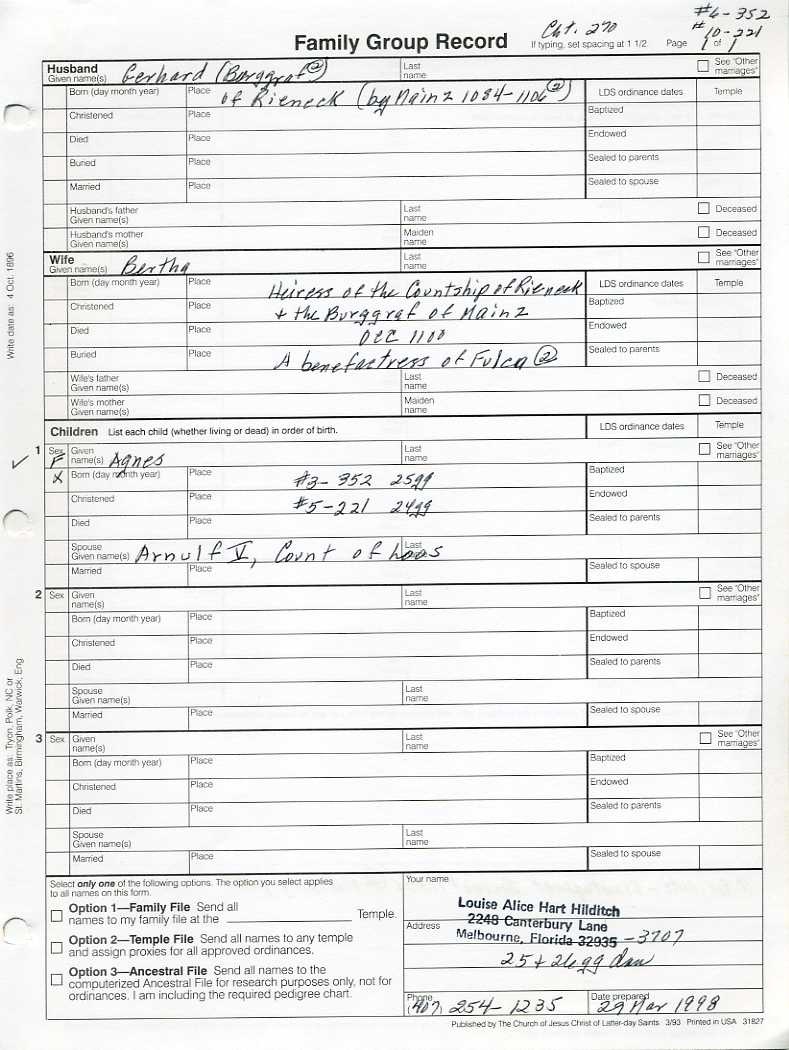 #6-352
Cht. 270
#10-221
Family Group Record
If typing, set spacing at 1 1/2. Page 1 of 1
Husband
Given name(s) Gerhard (Burggraf②
Last name
See "Other marriages"
Born (day month year)
Place of Rieneck (by Mainz 1084-1106②)
LDS ordinance dates
Temple
Christened
Place
Baptized
Died
Place
Endowed
Buried
Place
Sealed to parents
Married
Place
Sealed to spouse
Husband's father Given name(s)
Last name
Deceased
Husband's mother Given name(s)
Maiden name
Deceased
Wife
Given name(s) Bertha
Last name
See "Other marriages"
Born (day month year)
Place Heiress of the Countship of Rieneck
LDS ordinance dates
Temple
Christened
Place + the Burggraf of Mainz
Baptized
Died
Place Occ 1100
Endowed
Buried
Place A benefactress of Fulca②
Sealed to parents
Wife's father Given name(s)
Last name
Deceased
Wife's mother Given name(s)
Maiden name
Deceased
Children List each child (whether living or dead) in order of birth.
LDS ordinance dates
Temple
✓ 1 Sex F
Given name(s) Agnes
Last name
See "Other marriages"
X Born (day month year)
Place #3-352 25gg
Baptized
Christened
Place #5-221 24gg
Endowed
Died
Place
Sealed to parents
Spouse Given name(s) Arnulf V, Count of Loos
Last name
Married
Place
Sealed to spouse
2 Sex
Given name(s)
Last name
See "Other marriages"
Born (day month year)
Place
Baptized
Christened
Place
Endowed
Died
Place
Sealed to parents
Spouse Given name(s)
Last name
Married
Place
Sealed to spouse
3 Sex
Given name(s)
Last name
See "Other marriages"
Born (day month year)
Place
Baptized
Christened
Place
Endowed
Died
Place
Sealed to parents
Spouse Given name(s)
Last name
Married
Place
Sealed to spouse
Select only one of the following options. The option you select applies
to all names on this form.
Option 1—Family File Send all
names to my family file at the Temple.
Option 2—Temple File Send all names to any temple
and assign proxies for all approved ordinances.
Option 3—Ancestral File Send all names to the
computerized Ancestral File for research purposes only, not for
ordinances. I am including the required pedigree chart.
Your name
Louise Alice Hart Hilditch
Address 2248 Canterbury Lane
Melbourne, Florida 32935 -3707
25+26gg dau
Phone (407) 254-1235
Date prepared 29 Mar 1998
Published by The Church of Jesus Christ of Latter-day Saints 3/93 Printed in USA 31827
Write date as: 4 Oct. 1896
Write place as: Tryon, Polk, NC or
St. Martins, Birmingham, Warwick, Eng.